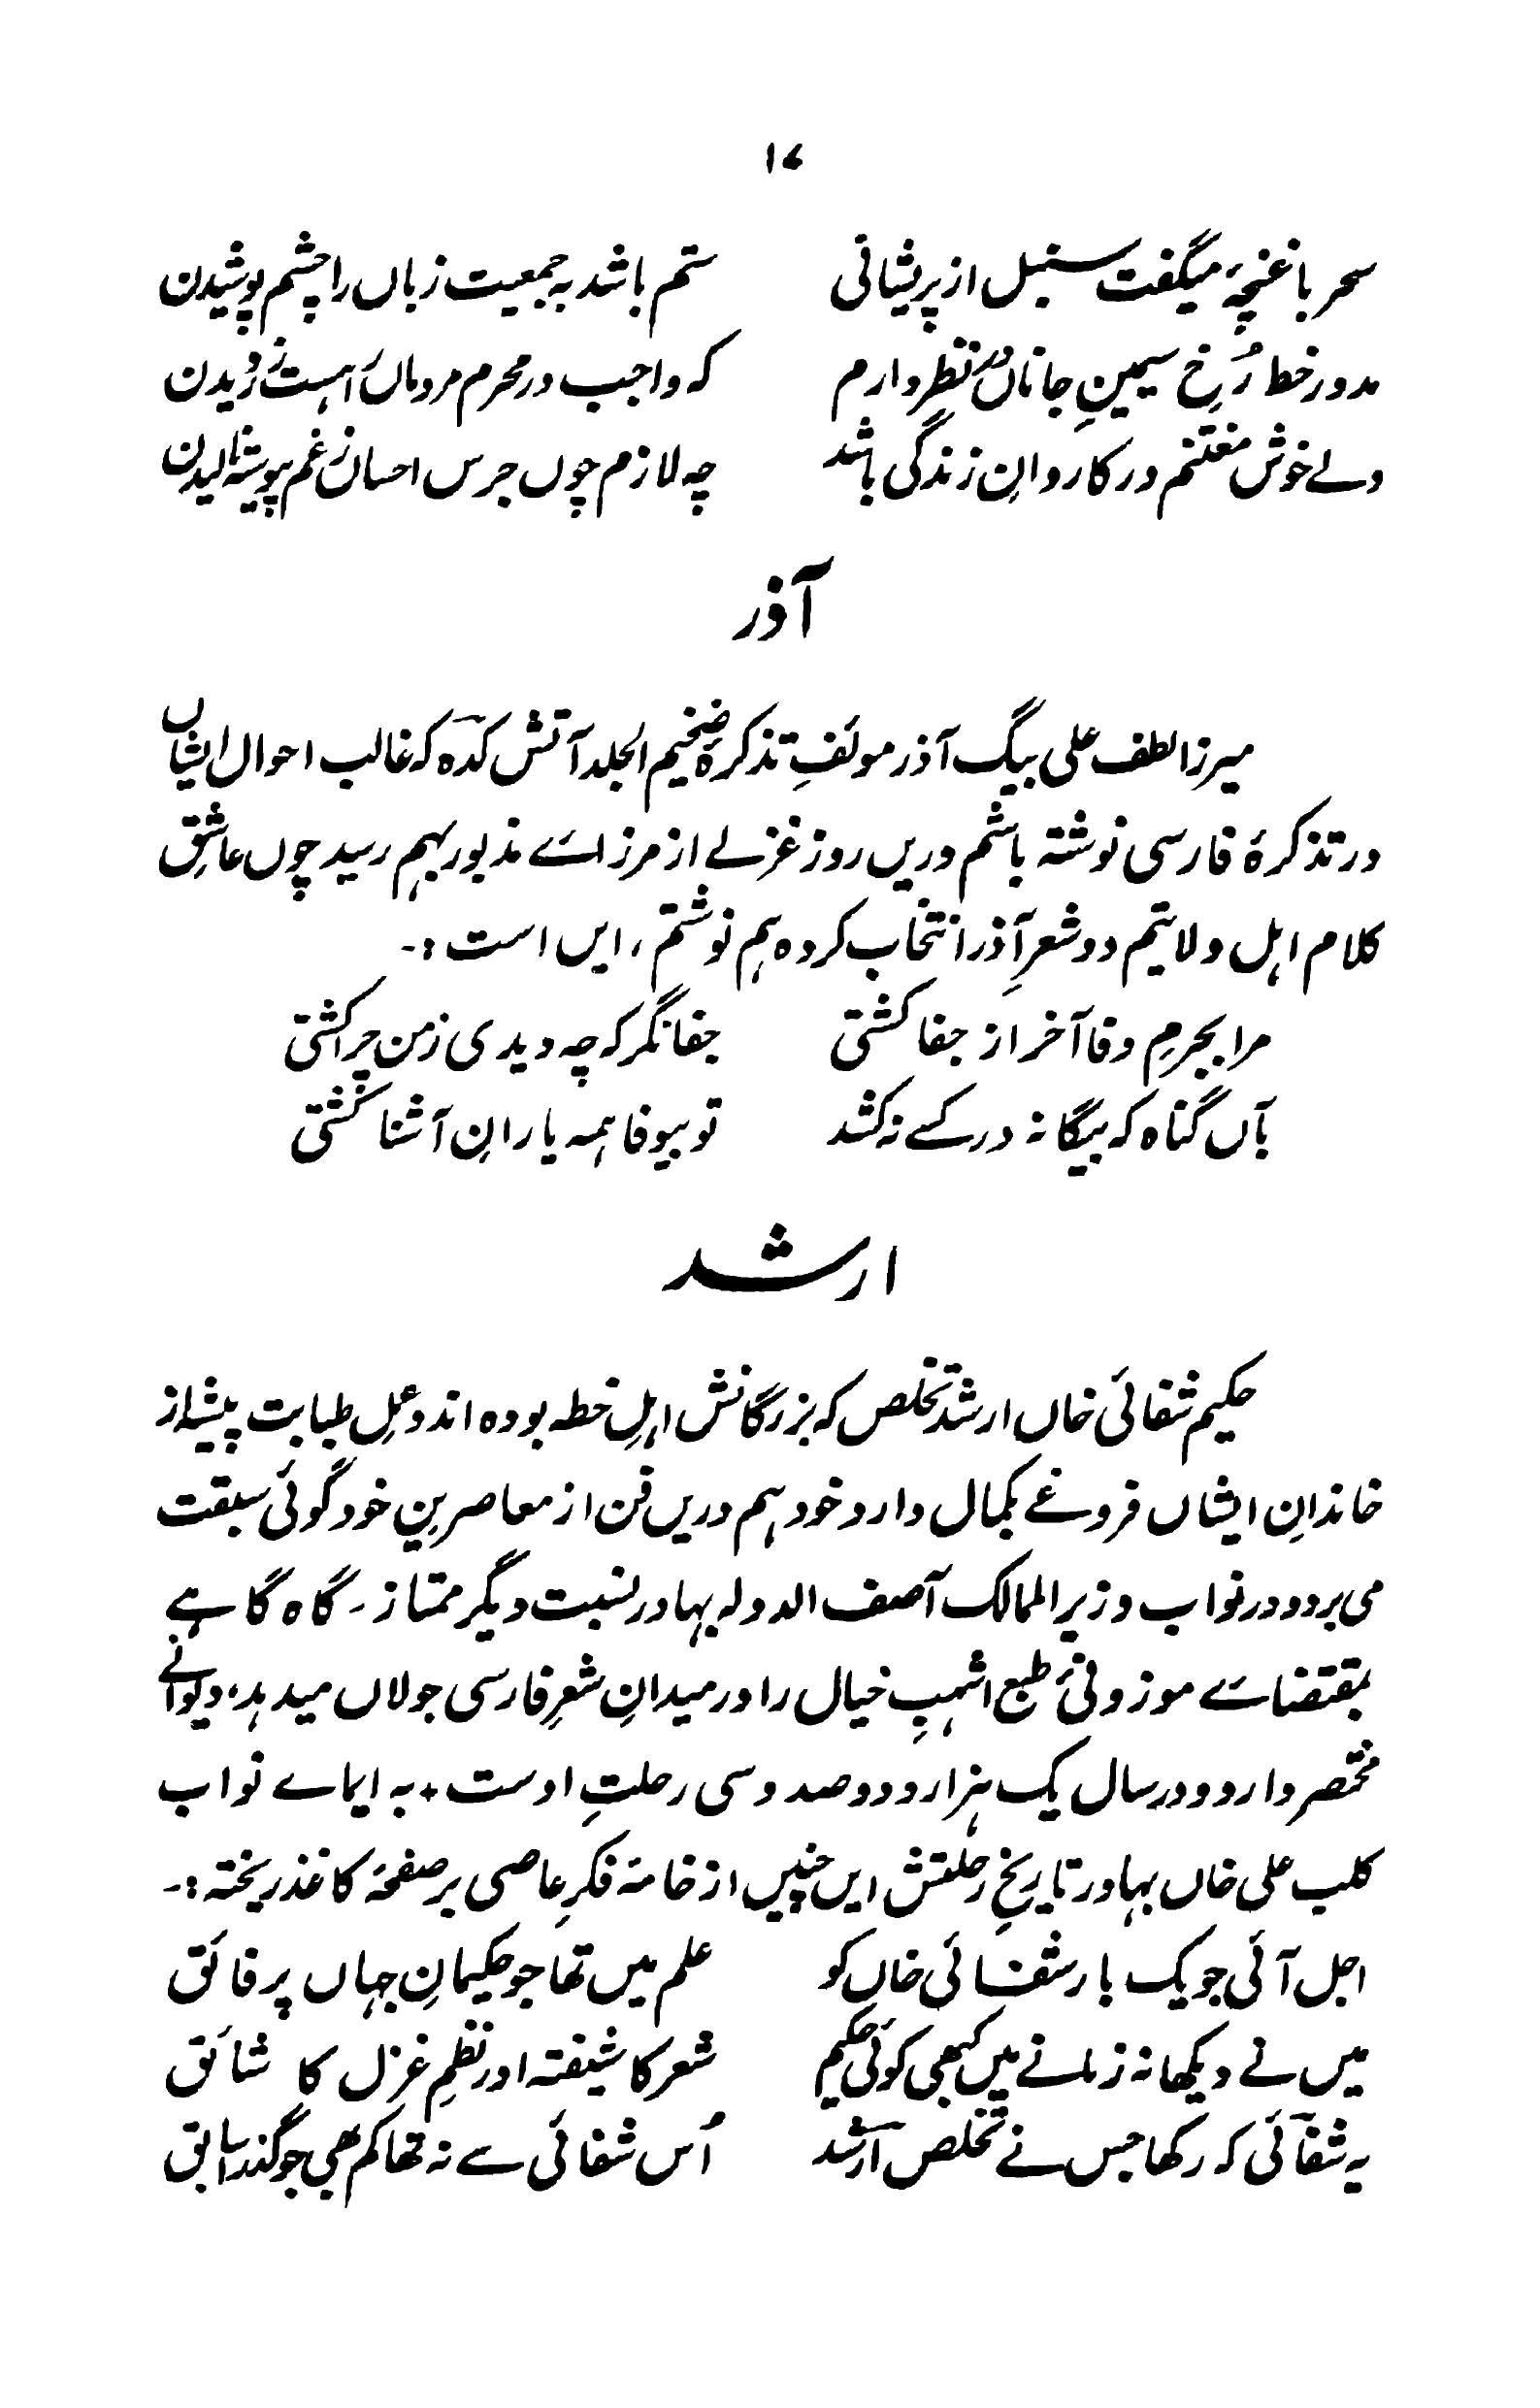 ۱۷
سحر با غنچۂ میگفت سنبل از پریشانی ستم باشد بہ جمعیت زباں را چشم پوشیدن
مدور خط رُخِ سیمینِ جاناں در نظر دارم کہ واجب در محرم مردماں را ہست دیدن
دلے خوش مغتنم در کاروانِ زندگی باشد چہ لازم چوں جرس احساں ز غم پیوستہ نالیدن
آذر
میرزا لطف علی بیگ آذر مولفِ تذکرۂ ضخیم الجلد آتش کدہ کہ غالب احوال ایشاں
در تذکرۂ فارسی نوشتہ باشم دریں روز غزلے از مرزاے مذبور بہم رسید چوں عاشقِ
کلام اہل ولایتم دو شعرِ آذر انتخاب کردہ ہم نوشتم، ایں است :۔
مرا بجرمِ وفا آخر از جفا کشتی جفا نگر کہ چہ دیدی ز من چرا کشتی
بآں گناہ کہ بیگانہ در کسے نہ کشد تو بیوفا ہمہ یارانِ آشنا کُشتی
ارشد
حکیم شفائی خاں ارشد تخلص کہ بزرگانش اہلِ خطہ بودہ اند و عملِ طبابت پیشہ از
خاندانِ ایشاں فروغے بکمال دارد خود ہم دریں فن از معاصرینِ خود گوئی سبقت
می برد و در نواب وزیر الممالک آصف الدولہ بہادر نسبت دیگر ممتاز۔ گاہ گاہے
بمقتضاے موزونیٔ طبع اشہبِ خیال را در میدانِ شعرِ فارسی جولاں میدہد، دیوانے
مختصر دارد و در سال یک ہزار و دو صد و سی رحلتِ اوست۔ بہ ایماے نواب
کلب علی خاں بہادر تاریخِ رحلتش ایں چنیں از خامۂ فکرِ عاصی بر صفحۂ کاغذ ریختہ :۔
اجل آئی جو یک بار شفائی خاں کو علم میں تھا جو حکیمانِ جہاں پر فائق
میں نے دیکھا نہ زمانے میں کبھی کوئی حکیم شعر کا شیفتہ اور نظمِ غزل کا شائق
یہ شفائی کہ رکھا جس نے تخلص ارشد اُس شفائی سے نہ تھا کم بھی جو گذرا سابق